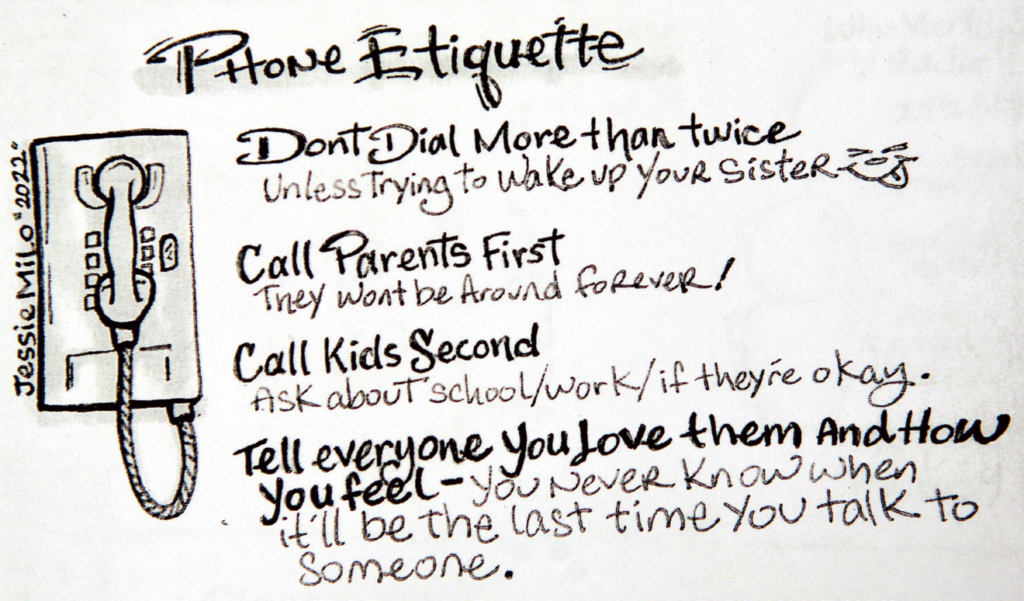 Phone Etiquette
Dont Dial More than twice
Unless Trying to wake up your sister
Call Parents First
They wont be Around forever!
Call Kids Second
Ask about school/work/if they're okay.
Tell everyone You Love them And How
you feel - you never know when
it'll be the last time you talk to
someone.
Jessie Milo "2022"